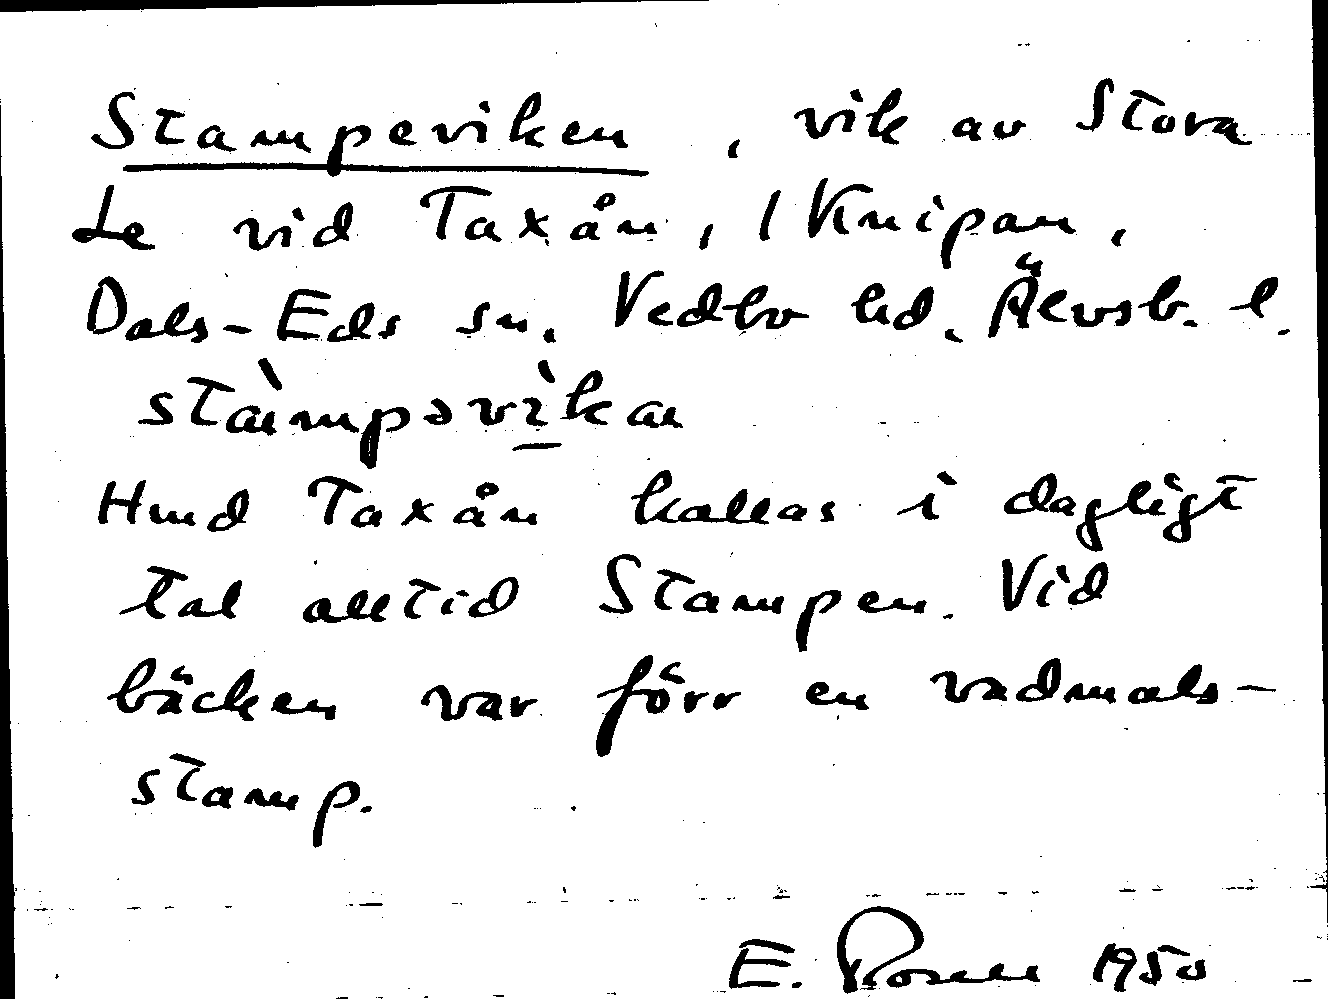 Stampeviken, vik av Stora
Le vid Taxån, 1 Knipan,
Dals-Eds sn. Vedbo hd. Älvsb. l.
stàmpəvìkan
Hmd Taxån kallas i dagligt
tal alltid Stampen. Vid
bäcken var förr en vadmals-
stamp.
E. Rosell 1950